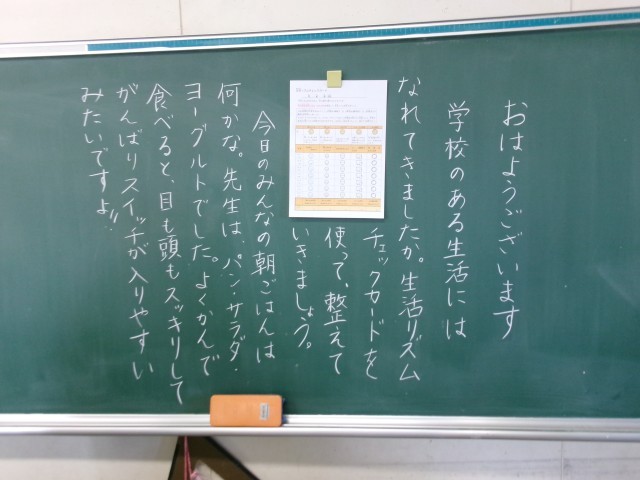 おはようございます
学校のある生活には
なれてきましたか。生活リズム
チェックカードを
使って、整えて
いきましょう。
今日のみんなの朝ごはんは
何かな。先生は、パン・サラダ・
ヨーグルトでした。よくかんで
食べると、目も頭もスッキリして
がんばりスイッチが入りやすい
みたいですよ!!